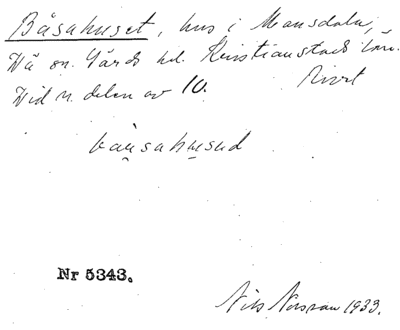 Båsahuset, hus i Mansdala,
Vä sn. Gärds hd. Kristianstads län.
Vid n. delen av 10. Rivet
båusahusud
Nr 5343.
Nils 1933.